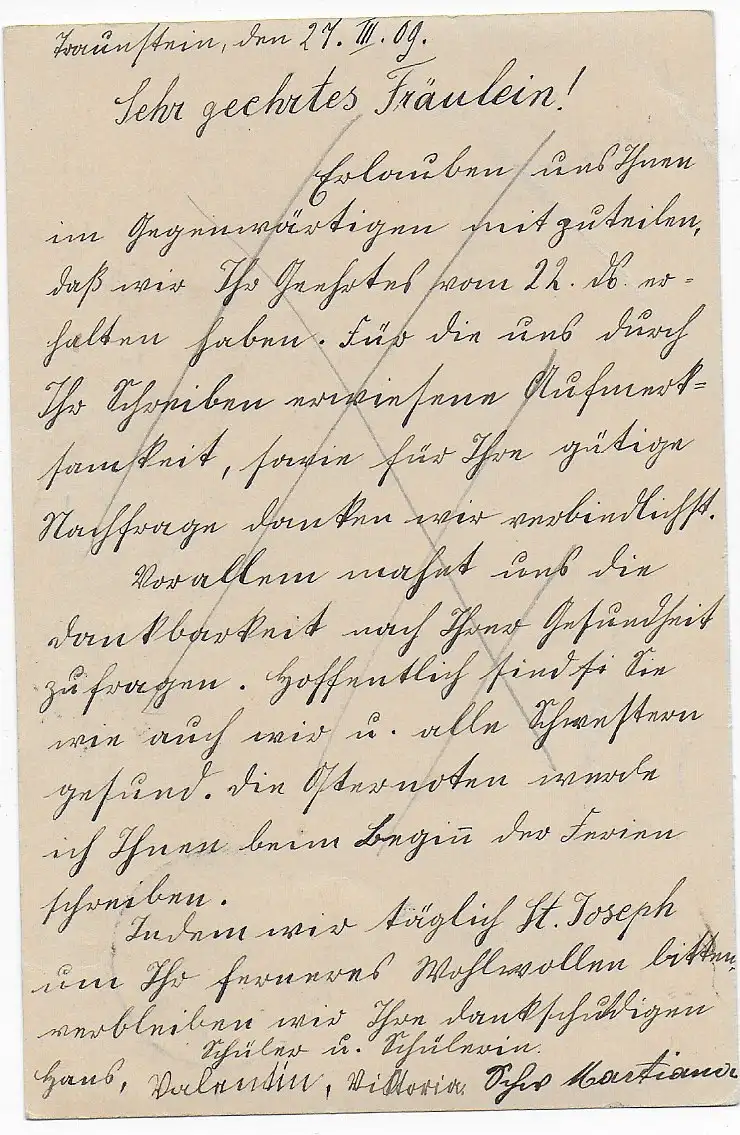 Traunstein, den 27. III. 09.
Sehr geehrtes Fräulein!
Erlauben uns Ihnen
im Gegenwärtigen mitzuteilen,
daß wir Ihr Geehrtes vom 22. ds. er=
halten haben. Für die uns durch
Ihr Schreiben erwiesene Aufmerk=
samkeit, sowie für Ihre gütige
Nachfrage danken wir verbindlichst.
Vorallem mahnt uns die
Dankbarkeit nach Ihrer Gesundheit
zufragen. Hoffentlich sind Sie
wie auch wir u. alle Schwestern
gesund. Die Osternoten werde
ich Ihnen beim Begin̄ der Ferien
schreiben.
Indem wir täglich St. Joseph
um Ihr ferneres Wohlwollen bitten,
verbleiben wir Ihre dankschuldigen
Schüler u. Schülerin.
Hans, Valentin, Viktoria. Schw